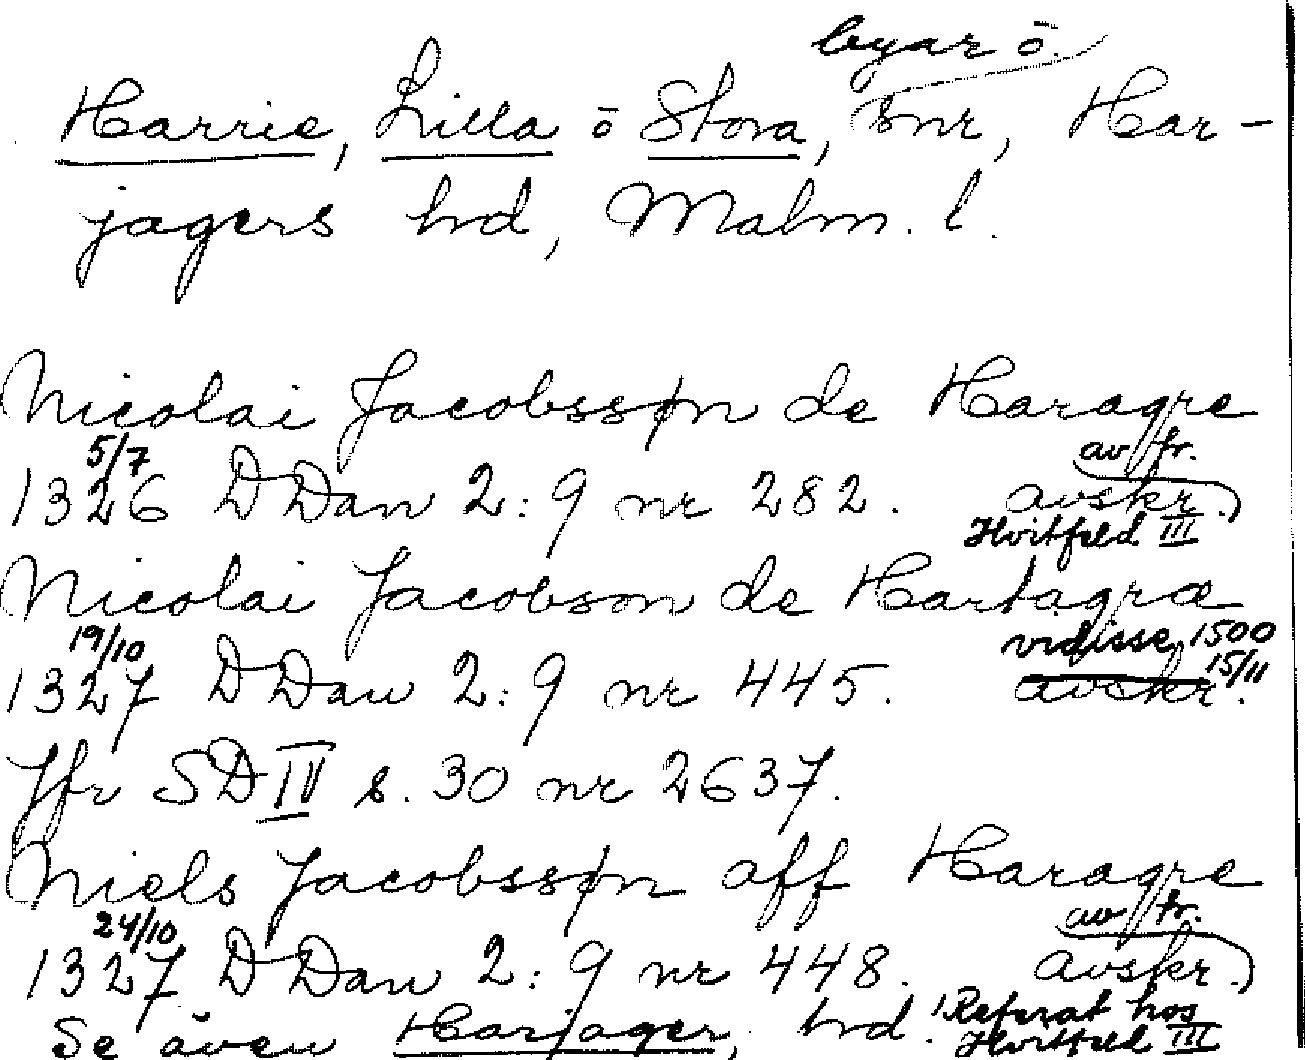 byar ō
Harrie, Lilla ō Stora, snr, Har-
jagers hd, Malm. l.
Nicolai Jacobssøn de Haragre
5/7 av fr.
1326 DDan 2:9 nr 282. avskr.)
Hvitfeld III
Nicolai Jacobson de Hartagræ
19/10 vidisse 1500
15/11
1327 DDan 2:9 nr 445. avskr.
Jfr SD IV s. 30 nr 2637.
Niels Jacobssøn aff Haragre
24/10 av fr.
1327 DDan 2:9 nr 448. avskr.)
Se även Harjager, hd! Referat hos
Hvitfeld III